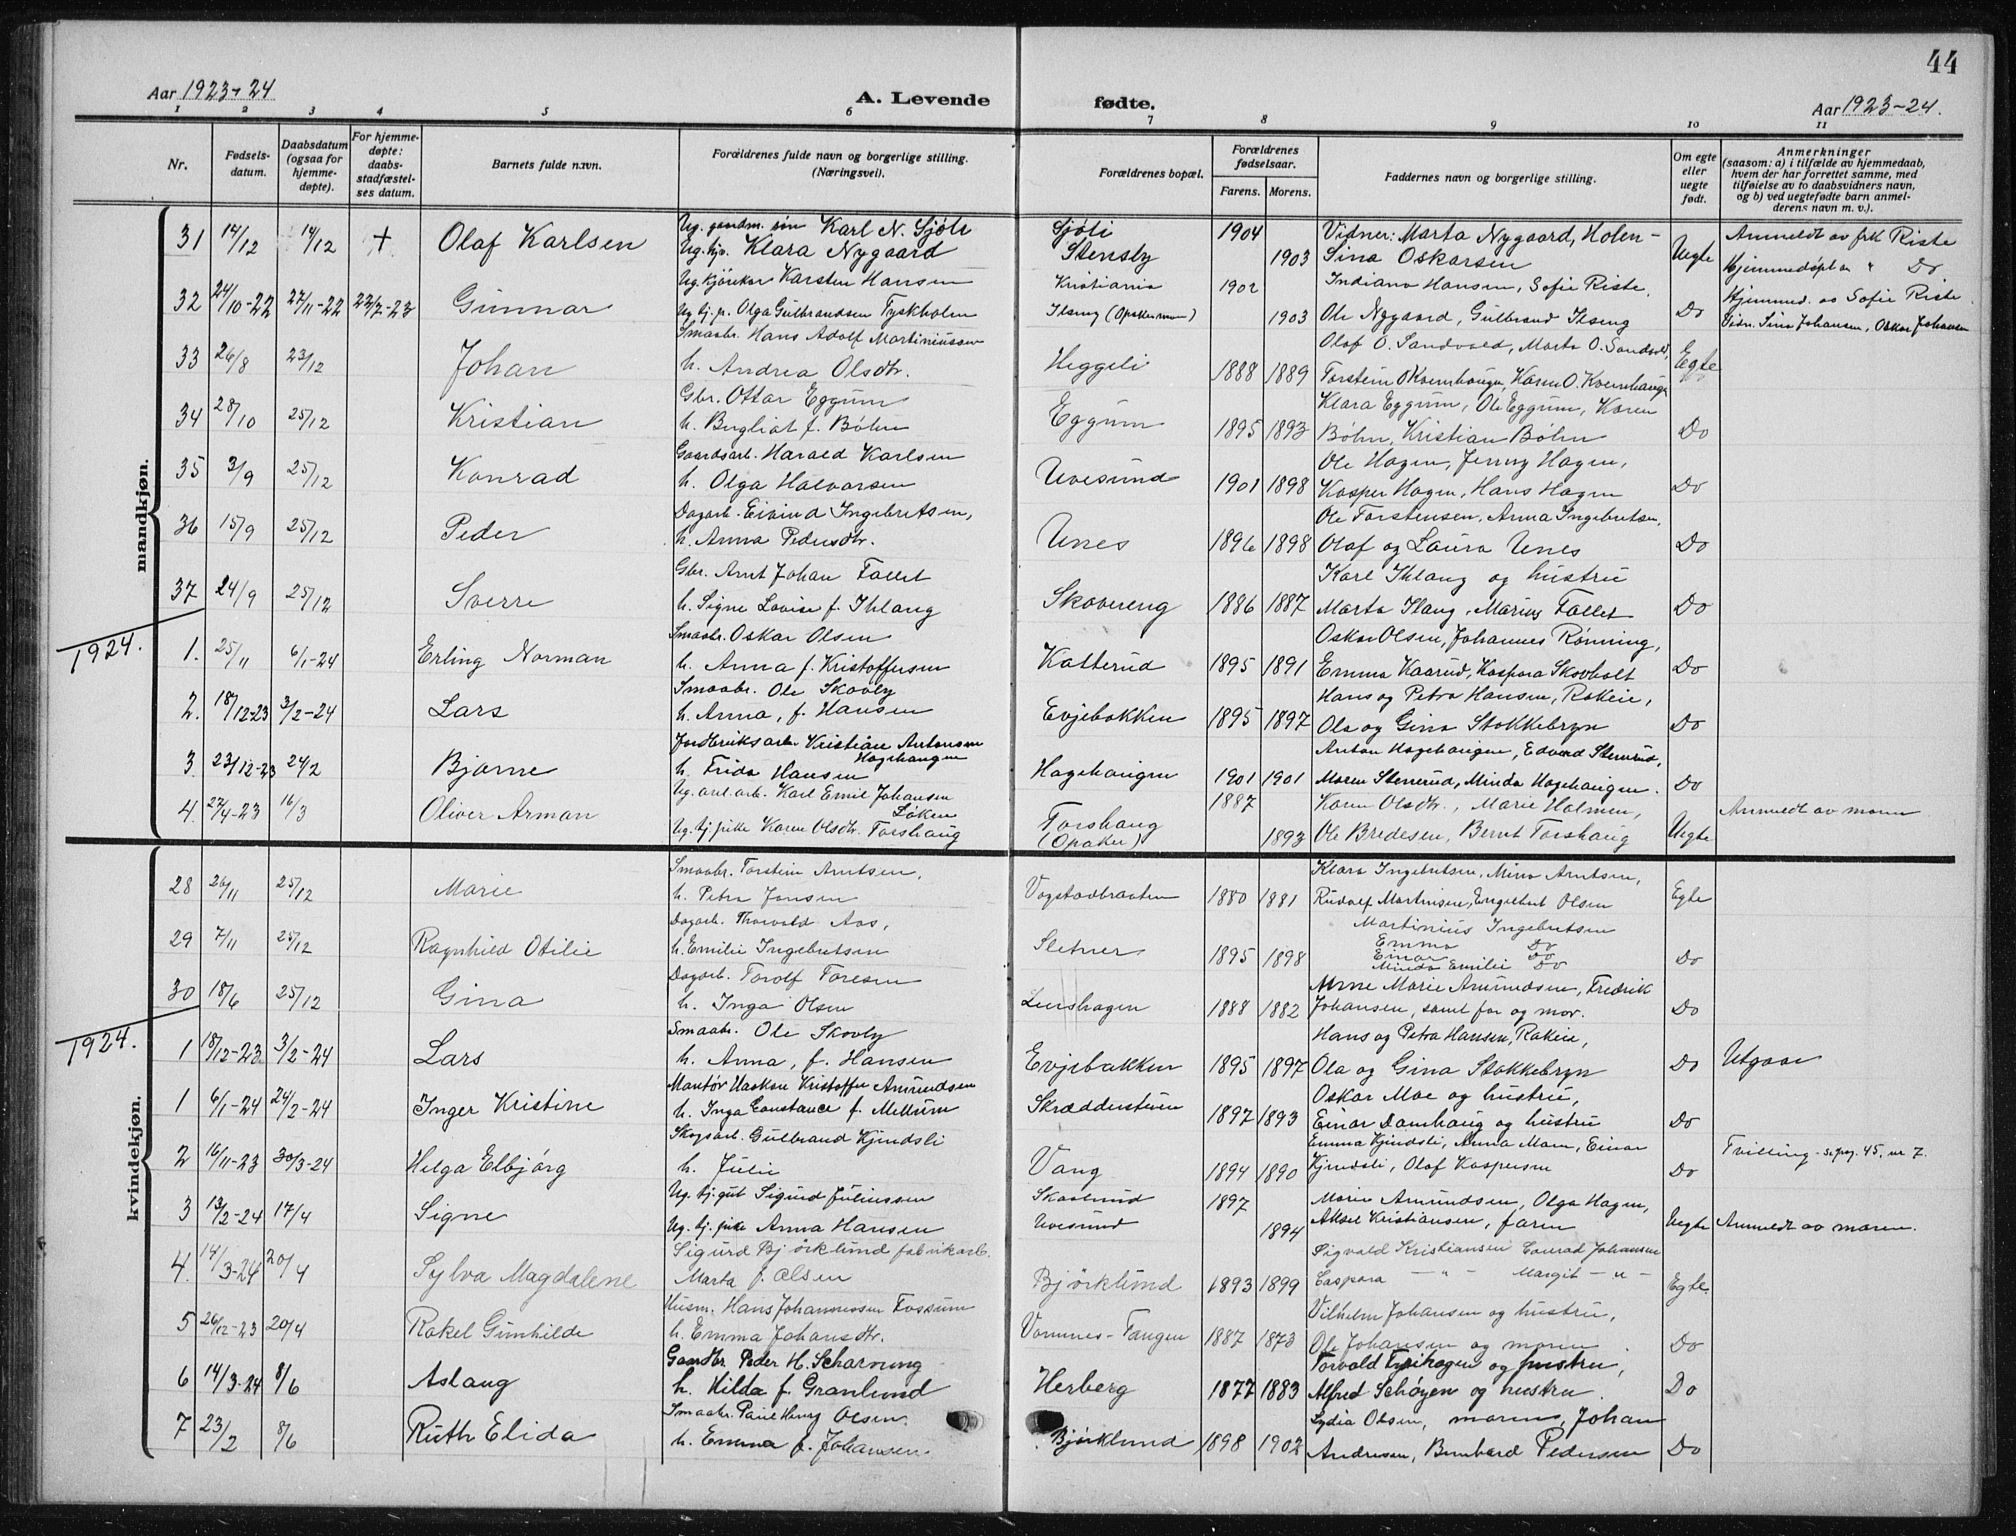 44
Aar 1923-24
A. Levende fødte.
Aar 1923-24.
1 2 3 4 5 6 7 8 9 10 11
Nr.
Fødsels-datum.
Daabsdatum (ogsaa for hjemme-døpte).
For hjemme-døpte: daabs-stadfæstel-ses datum.
Barnets fulde navn.
Forældrenes fulde navn og borgerlige stilling. (Næringsvei).
Forældrenes bopæl.
Forældrenes fødselsaar.
Farens. Morens.
Faddernes navn og borgerlige stilling.
Om egte eller uegte født.
Anmerkninger (saasom: a) i tilfælde av hjemmedaab, hvem der har forrettet samme, med tilføielse av to daabsvidners navn, og b) ved uegtefødte barn anmel-derens navn m. v.).
mandkjøn.
31 14/12 14/12 + Olaf Karlsen Ug. gaardm. søn Karl N. Sjøli Sjøli 1904 Vidner: Marta Nygaard, Holen- Uegte Anmeldt av frk Riste
Ug. tj.p. Klara Nygaard Stensby 1903 Sina Oskarsen Hjemmedøpt av " Do
32 24/10-22 27/11-22 22/7-23 Gunnar Ug. kjørekar Karsten Hansen Kristiania 1902 Indiana Hansen, Sofie Riste, Do Hjemmed. av Sofie Riste
Ug. tj. p. Olga Gulbrandsen Tyskholen Ilseng (Opakermoen) 1903 Ole Nygaard, Gulbrand Ilseng Vidn. Sina Johansen, Oskar Johansen
33 26/8 23/12 Johan Smaabr. Hans Adolf Martiniussen Heggeli 1888 1889 Olaf O. Sandvold, Marta O. Sandvold, Egte
h. Andrea Olsdtr. Torstein O Kvernhaugen, Karen O. Kvernhaugen
34 28/10 25/12 Kristian Gbr. Ottar Eggum Eggum 1895 1893 Klara Eggum, Ole Eggum, Karen Do
h. Bergliot f. Bøhn Bøhn, Kristian Bøhn
35 3/9 25/12 Konrad Gaardsarb. Harald Karlsen Uvesund 1901 1898 Ole Hagen, Jenny Hagen, Do
h. Olga Halvorsen Kasper Hagen, Hans Hagen
36 15/9 25/12 Peder Dagarb. Eivind Ingebretsen, Unes 1896 1898 Ole Torstensen, Anna Ingebretsen, Do
h. Anna Pedersdtr. Olaf og Laura Unes
37 24/9 25/12 Sverre Gbr. Arnt Johan Fallet Skovereng 1886 1887 Karl Ihlang og hustru Do
h. Signe Lovise f. Ihlang Marta Ilang, Marius Fallet
1924.
1. 25/11 6/1-24 Erling Norman Smaabr. Oskar Olsen Katterud 1895 1891 Oskar Olsen, Johannes Rønning, Do
h. Anna f. Kristoffersen Emma Kaarud, Kaspara Skovholt
2. 18/12-23 3/2-24 Lars Smaabr. Ole Skovly Evjebakken 1895 1897 Hans og Petra Hansen, Rakeie, Do
h. Anna, f. Hansen Ola og Gina Stokkebryn
3 23/12-23 24/2 Bjarne Jordbruksarb. Kristian Antonsen Hagehaugen Hagehaugen 1901 1901 Anton Hagehaugen, Edvard Stenerud, Do
h. Frida Hansen Maren Stenerud, Minda Hagehaugen.
4. 27/4-23 16/3 Oliver Arman Ug. anl.arb. Karl Emil Johansen Løken Torshaug (Opaker) 1887 Karen Olsdtr., Marie Holmen, Uegte Anmeldt av moren
Ug. tj.pike Karen Olsdtr. Torshaug 1893 Ole Bredesen, Bernt Torshaug
kvindekjøn.
28 26/11 25/12 Marie Smaabr. Torstein Arntsen, Vogstadbraaten 1880 1881 Klara Ingebretsen, Mina Arntsen, Egte
h. Petra Jonsen Rudolf Martinsen, Engelbret Olsen
29 7/11 25/12 Ragnhild Otilie Dagarb. Thorvald Aas, Sletner 1895 1898 Martinius Ingebretsen Do
h. Emilie Ingebretsen Emma Do
Einar Do
Minda Emilie Do
30 18/6 25/12 Gina Dagarb. Torolf Toresen Lershagen 1888 1882 Anne Marie Amundsen, Fredrik Do
h. Inga Olsen Johansen, samt far og mor.
1924.
1 18/12-23 3/2-24 Lars Smaabr. Ole Skovly Evjebakken 1895 1897 Hans og Petra Hansen, Rakeie, Do Utgaar
h. Anna, f. Hansen Ola og Gina Stokkebryn
1 6/1-24 24/2-24 Inger Kristine Montør Haakon Kristoffer Amundsen Skrædderstuen 1897 1893 Oskar Moe og hustru, Do
h. Inga Constance f. Mellum Einar Damhaug og hustru
2 16/11-23 30/3-24 Helga Elbjørg Skogsarb. Gulbrand Kjindsli Vang 1894 1890 Emma Kjindsli, Anna Moen, Einar Do Tvilling - se pag. 45, nr 7.
h. Julie Kjindsli, Olaf Kaspersen
3 13/2-24 17/4 Signe Ug. tj.gut Sigurd Juliussen Skaslund 1897 Marie Amundsen, Olga Hagen, Uegte Anmeldt av moren.
Ug. tj. pike Anna Hansen Uvesund 1894 Aksel Kristiansen, faren
4. 14/3-24 20/4 Sylva Magdalene Sigurd Bjørklund fabrikarb. Bjørklund 1893 1899 Sigvald Kristiansen Conrad Johansen Egte
Marta f. Olsen Caspara — " — Margit — " —
5 26/12-23 20/4 Rakel Gunhilde Husm. Hans Johannessen Fossum Vormnes-Tangen 1887 1873 Vilhelm Johansen og hustru, Do
h. Emma Johansdtr. Ole Johansen og moren.
6 14/3-24 8/6 Aslaug Gaardbr. Peder H. Scharning Herberg 1877 1883 Torvald Fyrihagen og hustru, Do
h. Hilda f. Granlund Alfred Schøyen og hustru.
7 23/2 8/6 Ruth Elida Smaabr. Paul Henry Olsen. Bjørklund 1898 1902 Lydia Olsen, moren, Johan Do
h. Emma f. Johansen. Andresen, Bernhard Pedersen